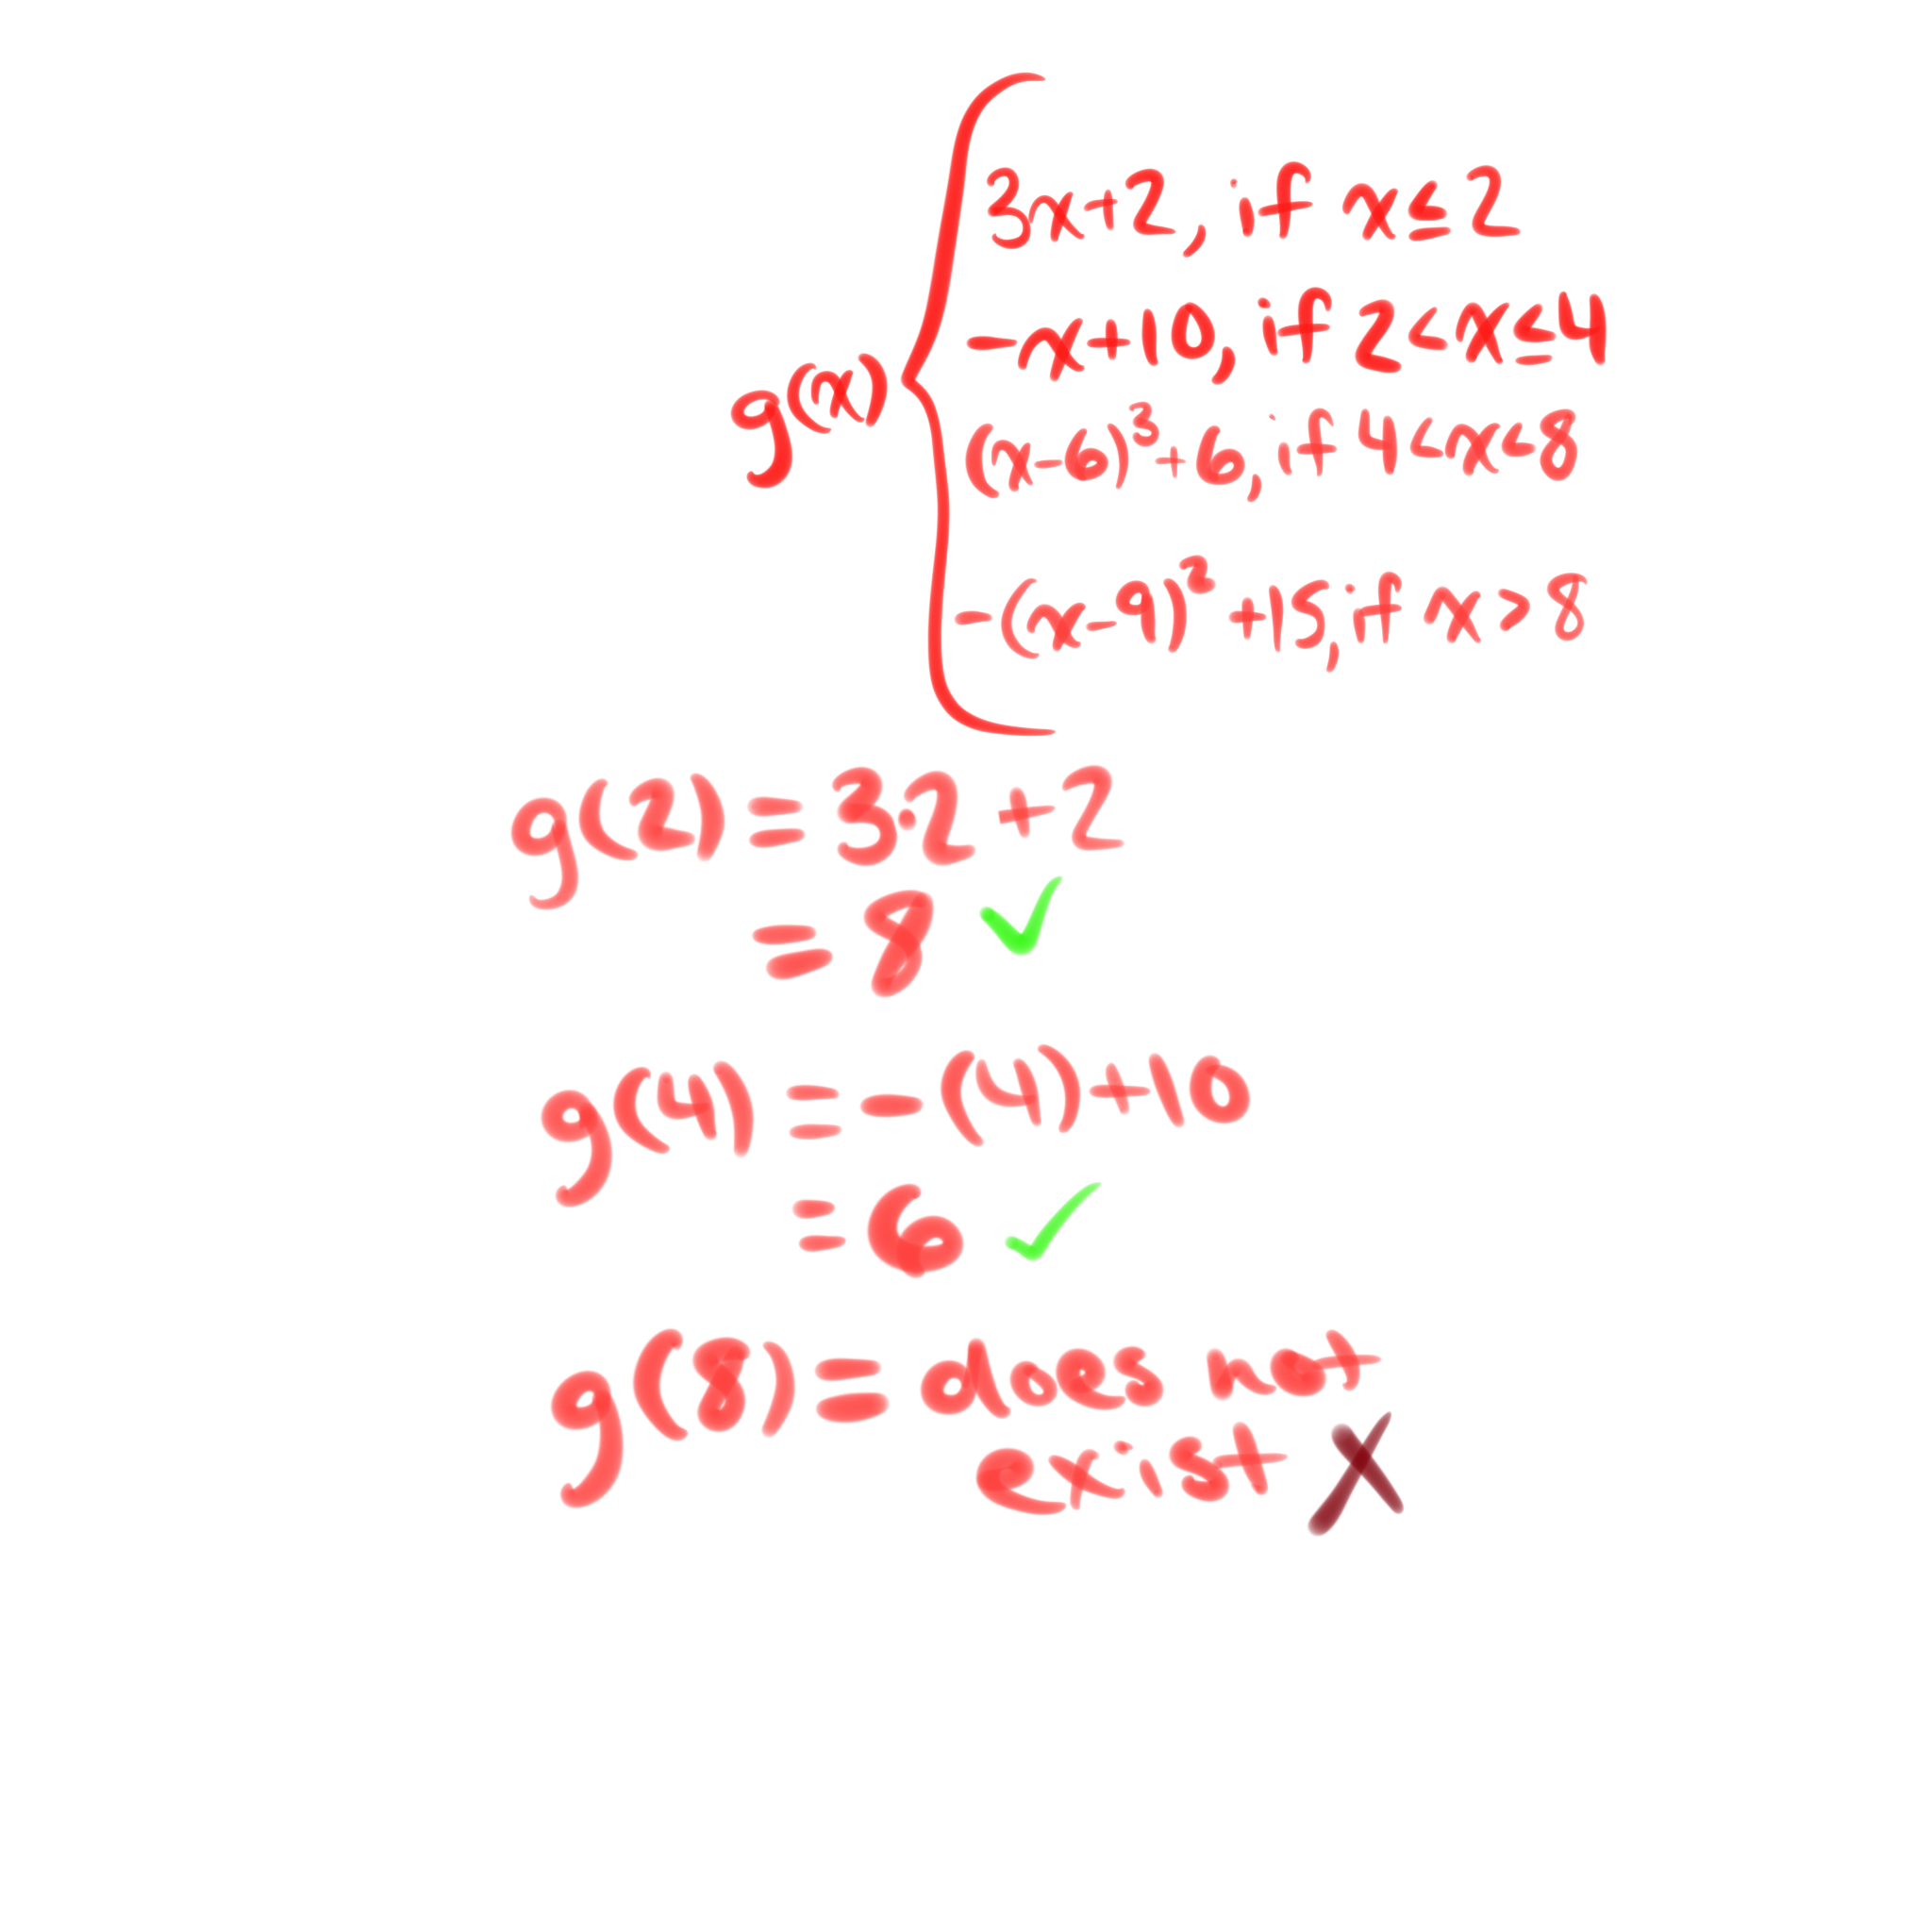 3x+2, if x≤2
-x+10, if 2<x≤4
g(x)
(x-6)³+6, if 4<x<8
-(x-9)²+15, if x>8
g(2) = 3·2+2
= 8 ✓
g(4) = -(4)+10
= 6 ✓
g(8) = does not
exist X